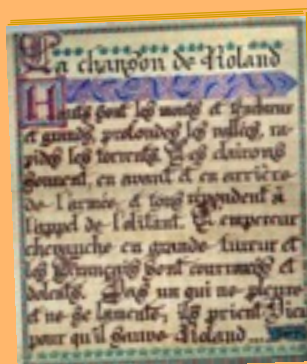 La chanson de Roland
Hauts sont les monts et ténébreux
et grands, profondes les vallées, ra-
pides les torrents. Les clairons
sonnent, en avant et en arrière
de l'armée, et tous répondent à
l'appel de l'olifant. L'empereur
chevauche en grande fureur et
les Français sont courroucés et
dolents. Pas un qui ne pleure
et ne se lamente, ils prient Dieu
pour qu'il sauve Roland...